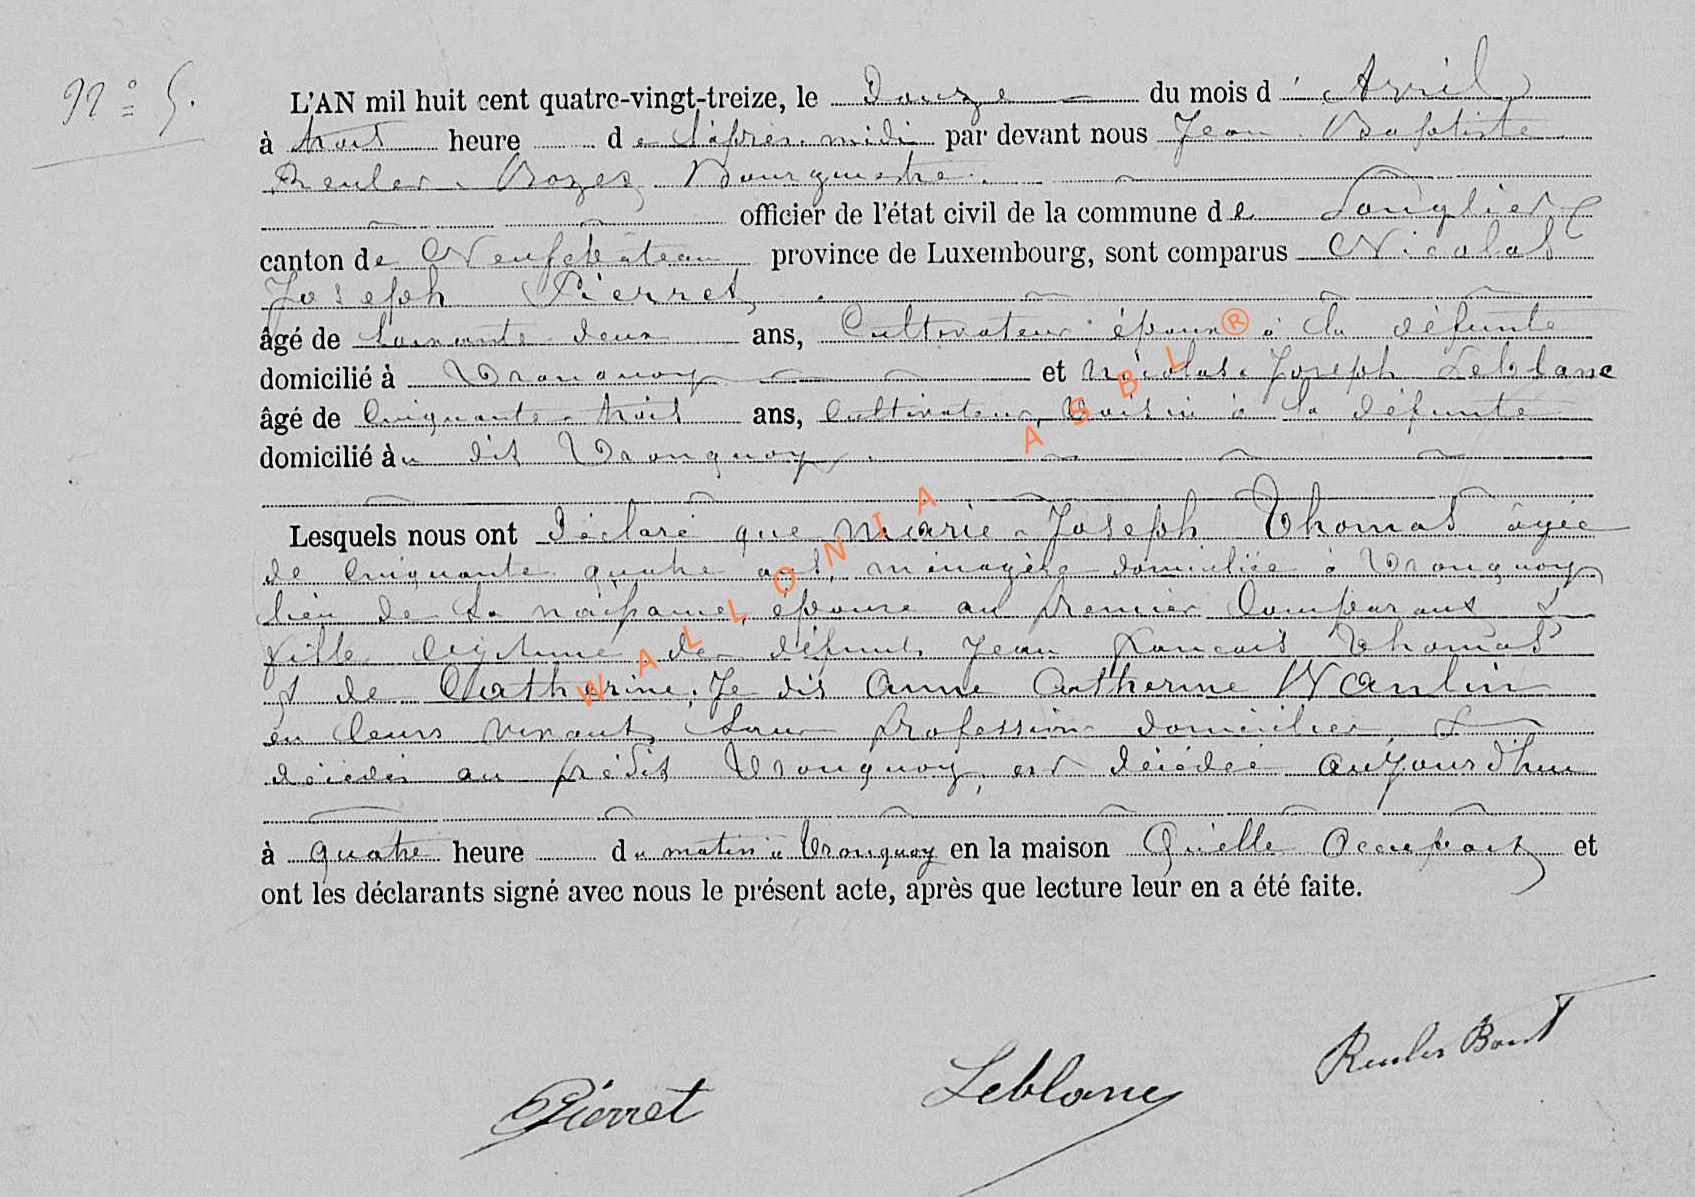 N° 5.
L'AN mil huit cent quatre-vingt-treize, le Douze du mois d' Avril
à trois heure de l'après-midi par devant nous Jean Baptiste
Reuler - Bozet Bourgmestre.
officier de l'état civil de la commune de Longlier
canton de Neufchâteau, province de Luxembourg, sont comparus Nicolas
Joseph Pierret,
âgé de Soixante deux ans, Cultivateur époux à la défunte
domicilié à Tronquoy et Nicolas Joseph Leblanc
âgé de Cinquante-trois ans, Cultivateur, Voisin à la défunte
domicilié au dit Tronquoy.
Lesquels nous ont déclaré que Marie-Joseph Thomas âgée
de Cinquante quatre ans, ménagère domiciliée à Tronquoy
lieu de sa naissance, épouse au premier Comparant &
fille légitime de défunts Jean François Thomas
& de Catherine, Je dis Anne Catherine Wanlin
en leurs vivants, Sans profession domiciliés &
décédés au prédit Tronquoy, est décédée aujourd'hui
à quatre heure du matin à Tronquoy en la maison Qu'elle Occupait et
ont les déclarants signé avec nous le présent acte, après que lecture leur en a été faite.
Pierret
Leblanc
Reuler
WALLONIA ASBL ®